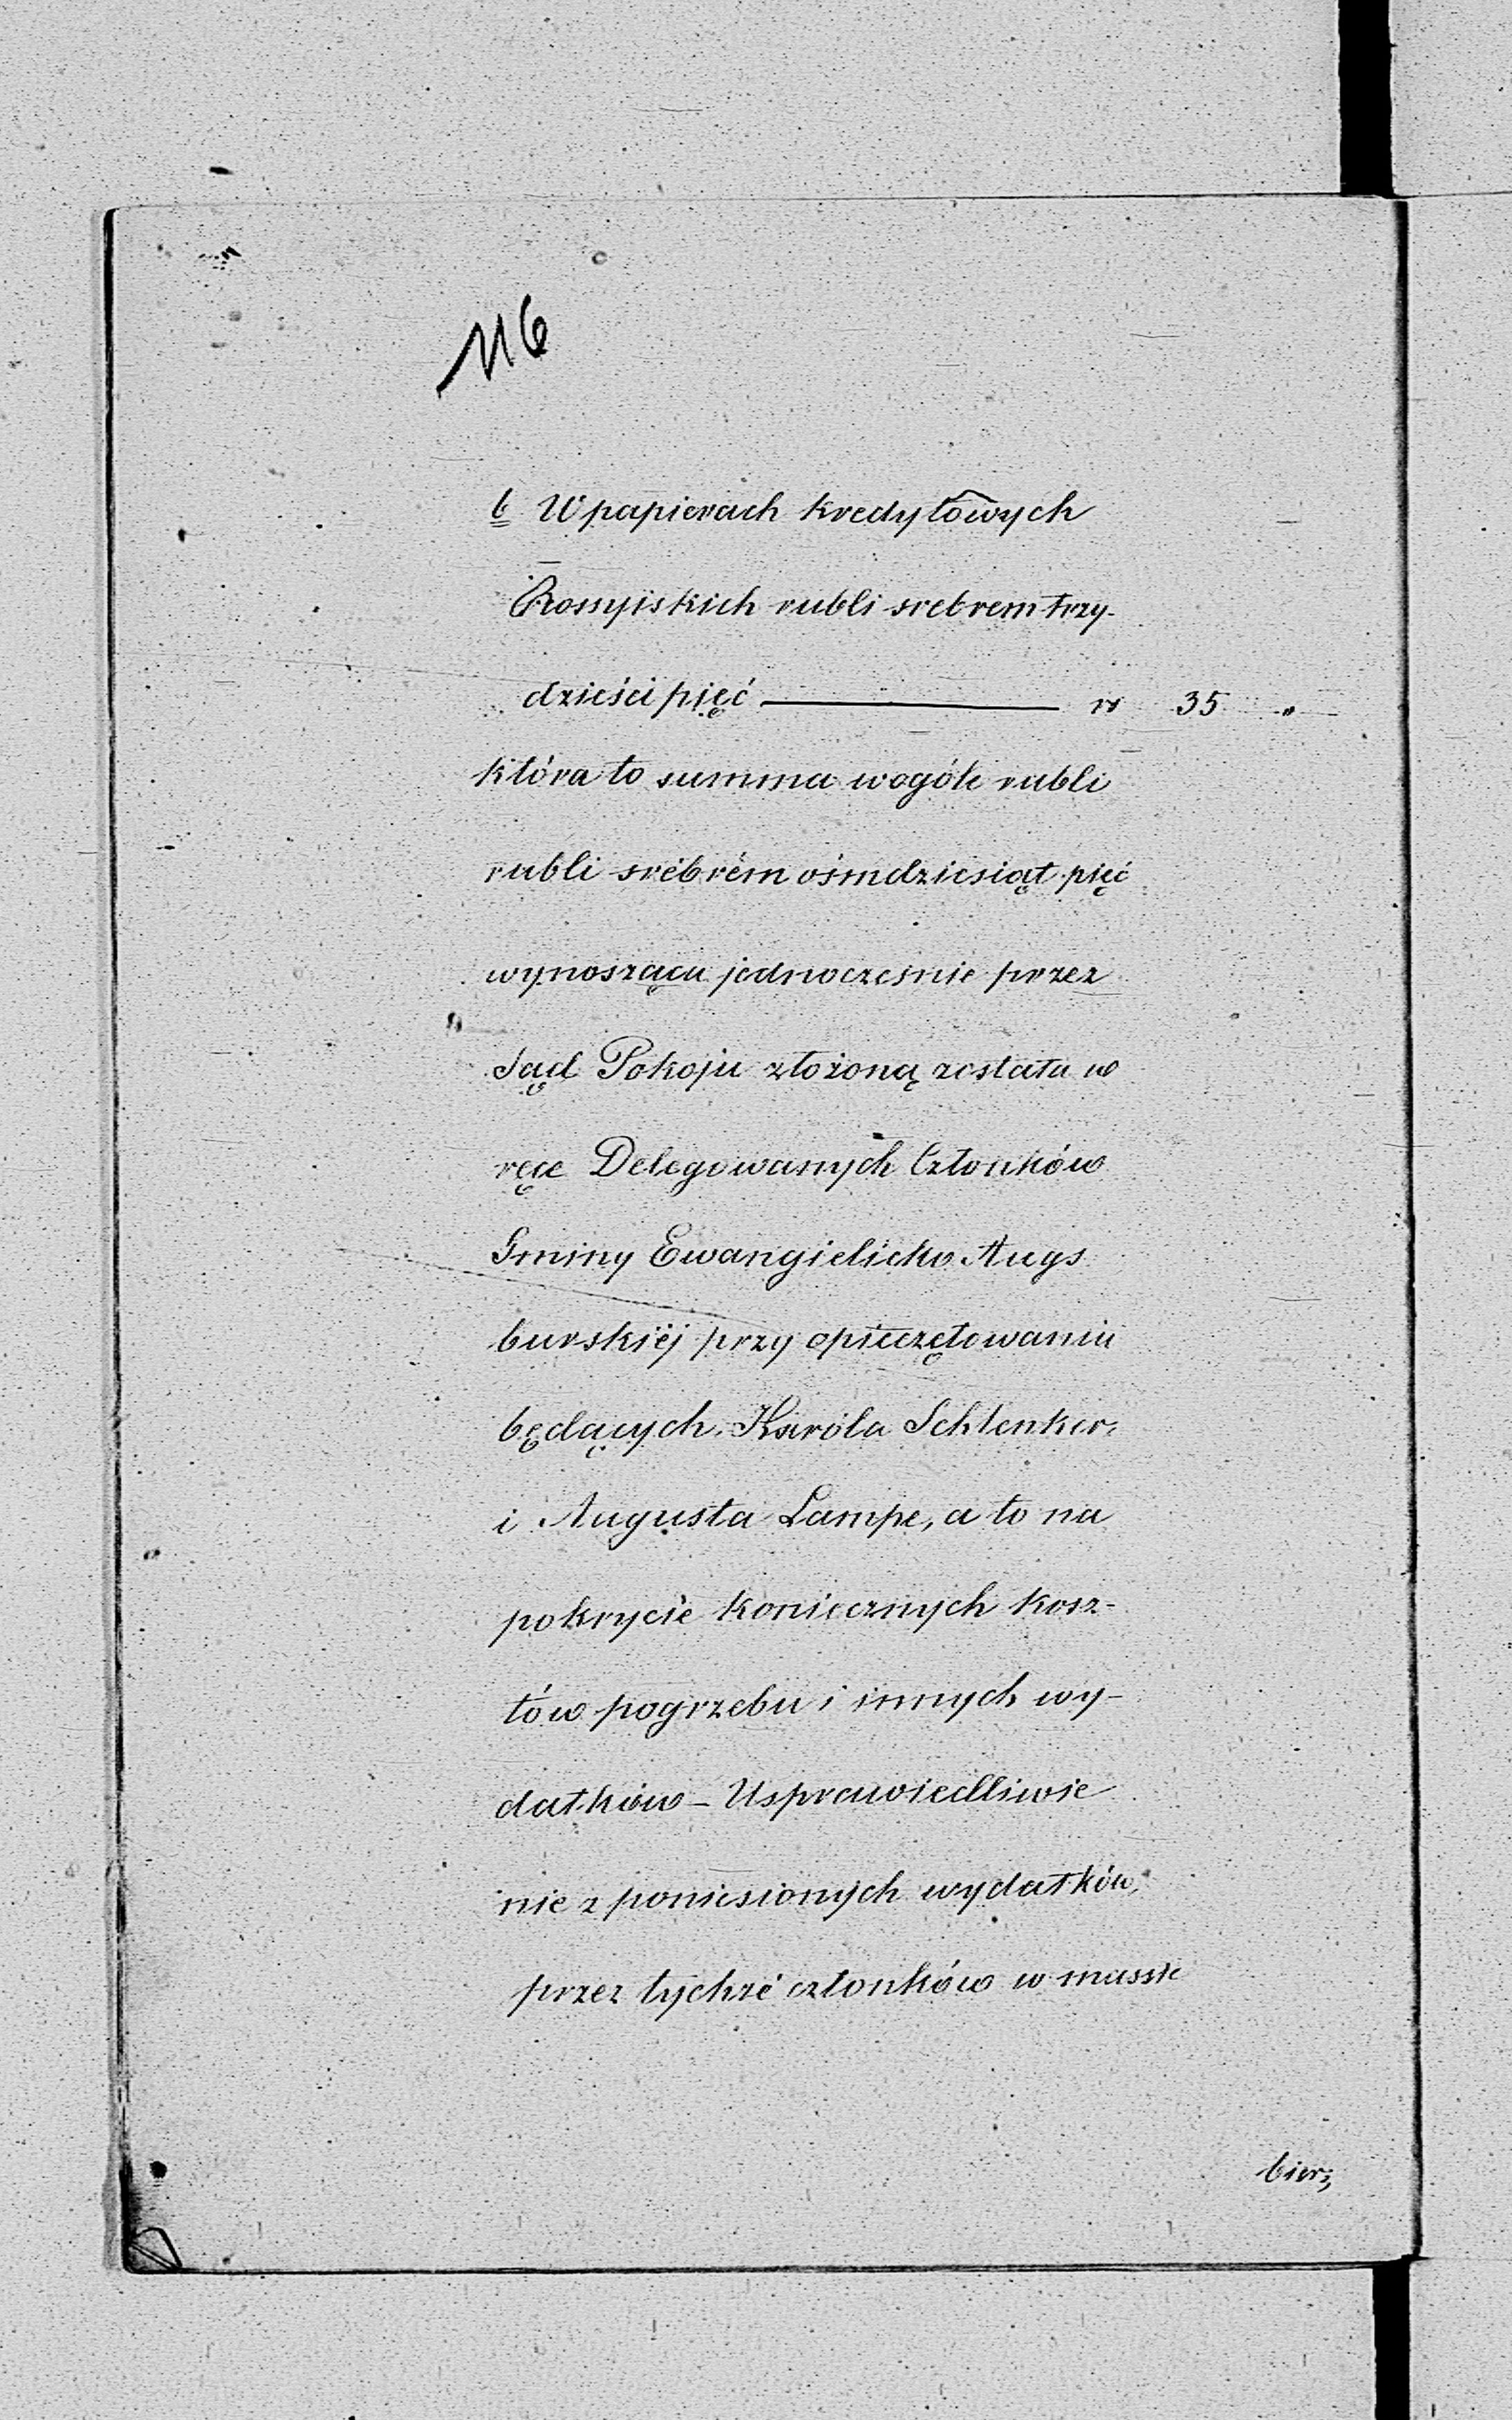 116
b W papierach kredytowych
Rossyiskich rubli srebrem trzy-
dzieści pięć ——— rs 35 "
która to summa wogóle rubli
rubli srébrém ośmdziesiąt pięć
wynosząca jednocześnie przez
Sąd Pokoju złożoną została w
ręce Delegowanych Członków
Gminy Ewangielicko Augs
burskiéj przy opieczętowaniu
będących Karóla Schlenker
i Augusta Lampe, a to na
pokrycie koniecznych kosz-
tów pogrzebu i innych wy-
datków – Usprawiedliwie
nie z poniesionych wydatków,
przez tychże członków w massie